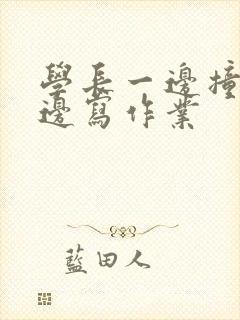 學長一邊撞
邊寫作業
藍田人